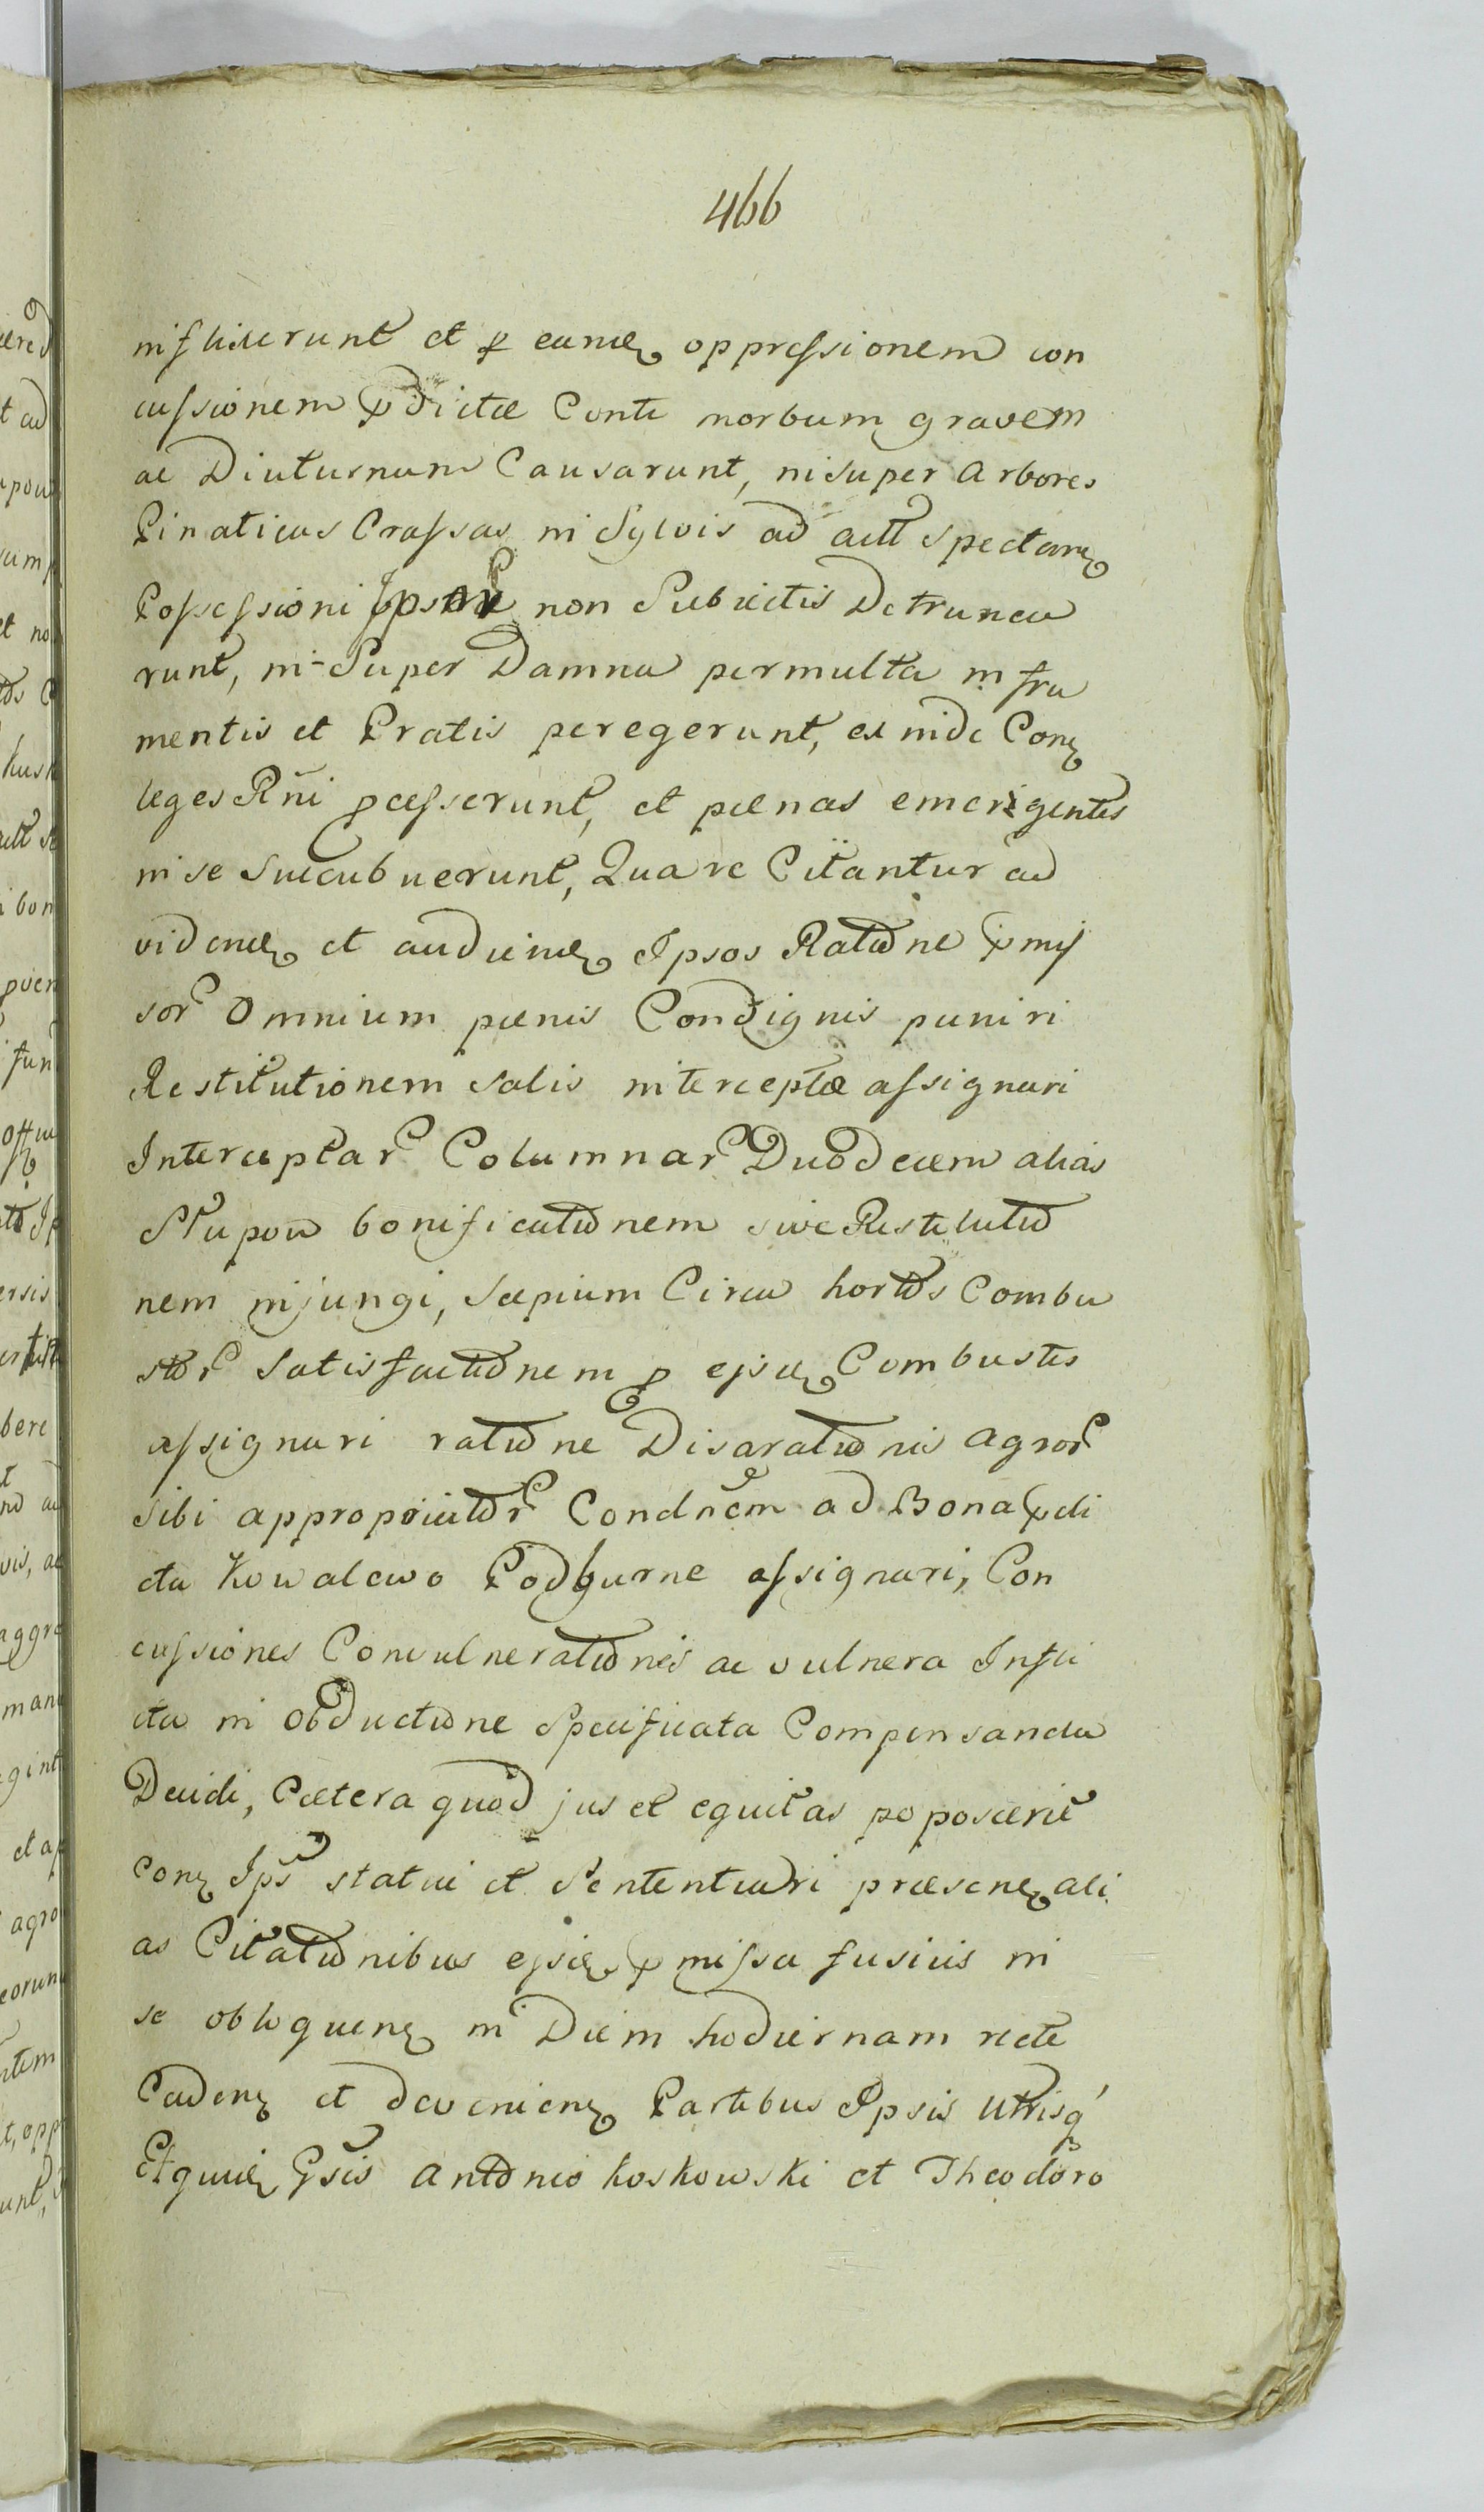 466
inflixerunt et p eandẽ oppressionem con
cussionem pdictæ Conti morbum gravem
ac Diuturnum Causarunt, in super Arbores
Pinaticas Crassas in Sylvis ad actt Spectan
Possessioni Ipsor non Subiectis Detrunca
runt, in-Super Damna permulta in fru
mentis et Pratis peregerunt, ex inde Con
leges Rñi pcesserunt, et pænas emerigentes
in se Succubuerunt, Quare Citantur ad
videnđ et audienđ Ipsos Ratione pmis
sor Omnium pænis Condignis puniri
Restitutionem Salis interceptæ assignari
Interceptar Columnar Duodecem alias
Słupow bonificationem sive Restitutio
nem injungi, Sæpium Circa hortos Combu
stor Satisfactionem p ejsđ Combustis
assignari ratione Disarationis Agror
sibi appropriator Condnem ad Bona pdi
cta Kowalewo Podgurne assignari, Con
cussiones Convulnerationis ac vulnera Infli
cta in Obductione Specificata Compensanda
Decidi, Cætera quod jus et equitas poposcerit
con Ips statui et Sententiari præsen ali
as Citationibus ejsđ pmissa fusius in
se obloquen in Diem hodiernam recte
Caden et devenien Partibus Ipsis Utrisq
Etquid Gsis Antonio Koskowski et Theodoro